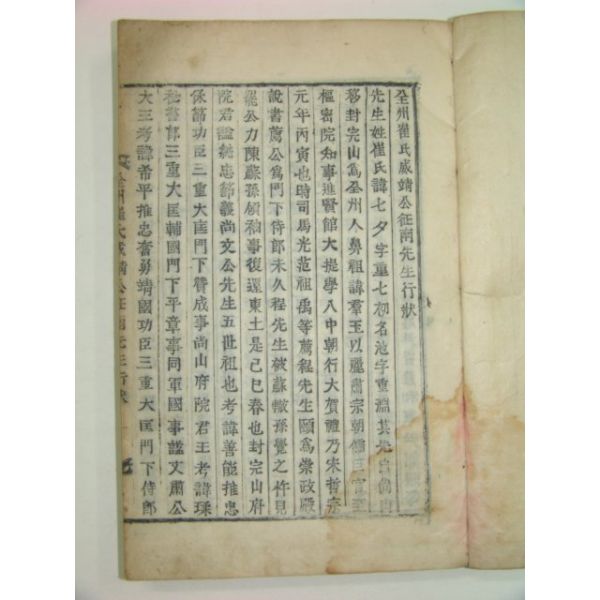 全州崔氏威靖公征南先生行狀
先生姓崔氏諱七夕字重七初名池字重淵其先自尚
移封完山爲全州人鼻祖諱羣玉以麗肅宗朝
樞密院知事進賢館大提學入中朝行大賀禮乃宋哲宗
元年丙寅也時司馬光范祖禹等薦程先生頤爲崇政殿
說書薦公爲門下侍郎未久程先生被蘇轍孫覺之作見
能公力陳蘇孫領袖事復還東土是己巳春也封完山府
院君謚純忠節義尚文公先生五世祖也考諱善能推忠
保節功臣三重大匡門下贊成事尚山府院君王考諱琜
秘書郎三重大匡輔國門下平章事同軍國事謚文肅公
大王考諱希平推忠奮勇靖國功臣三重大匡門下侍郎
全州崔氏威靖公征南先生行狀